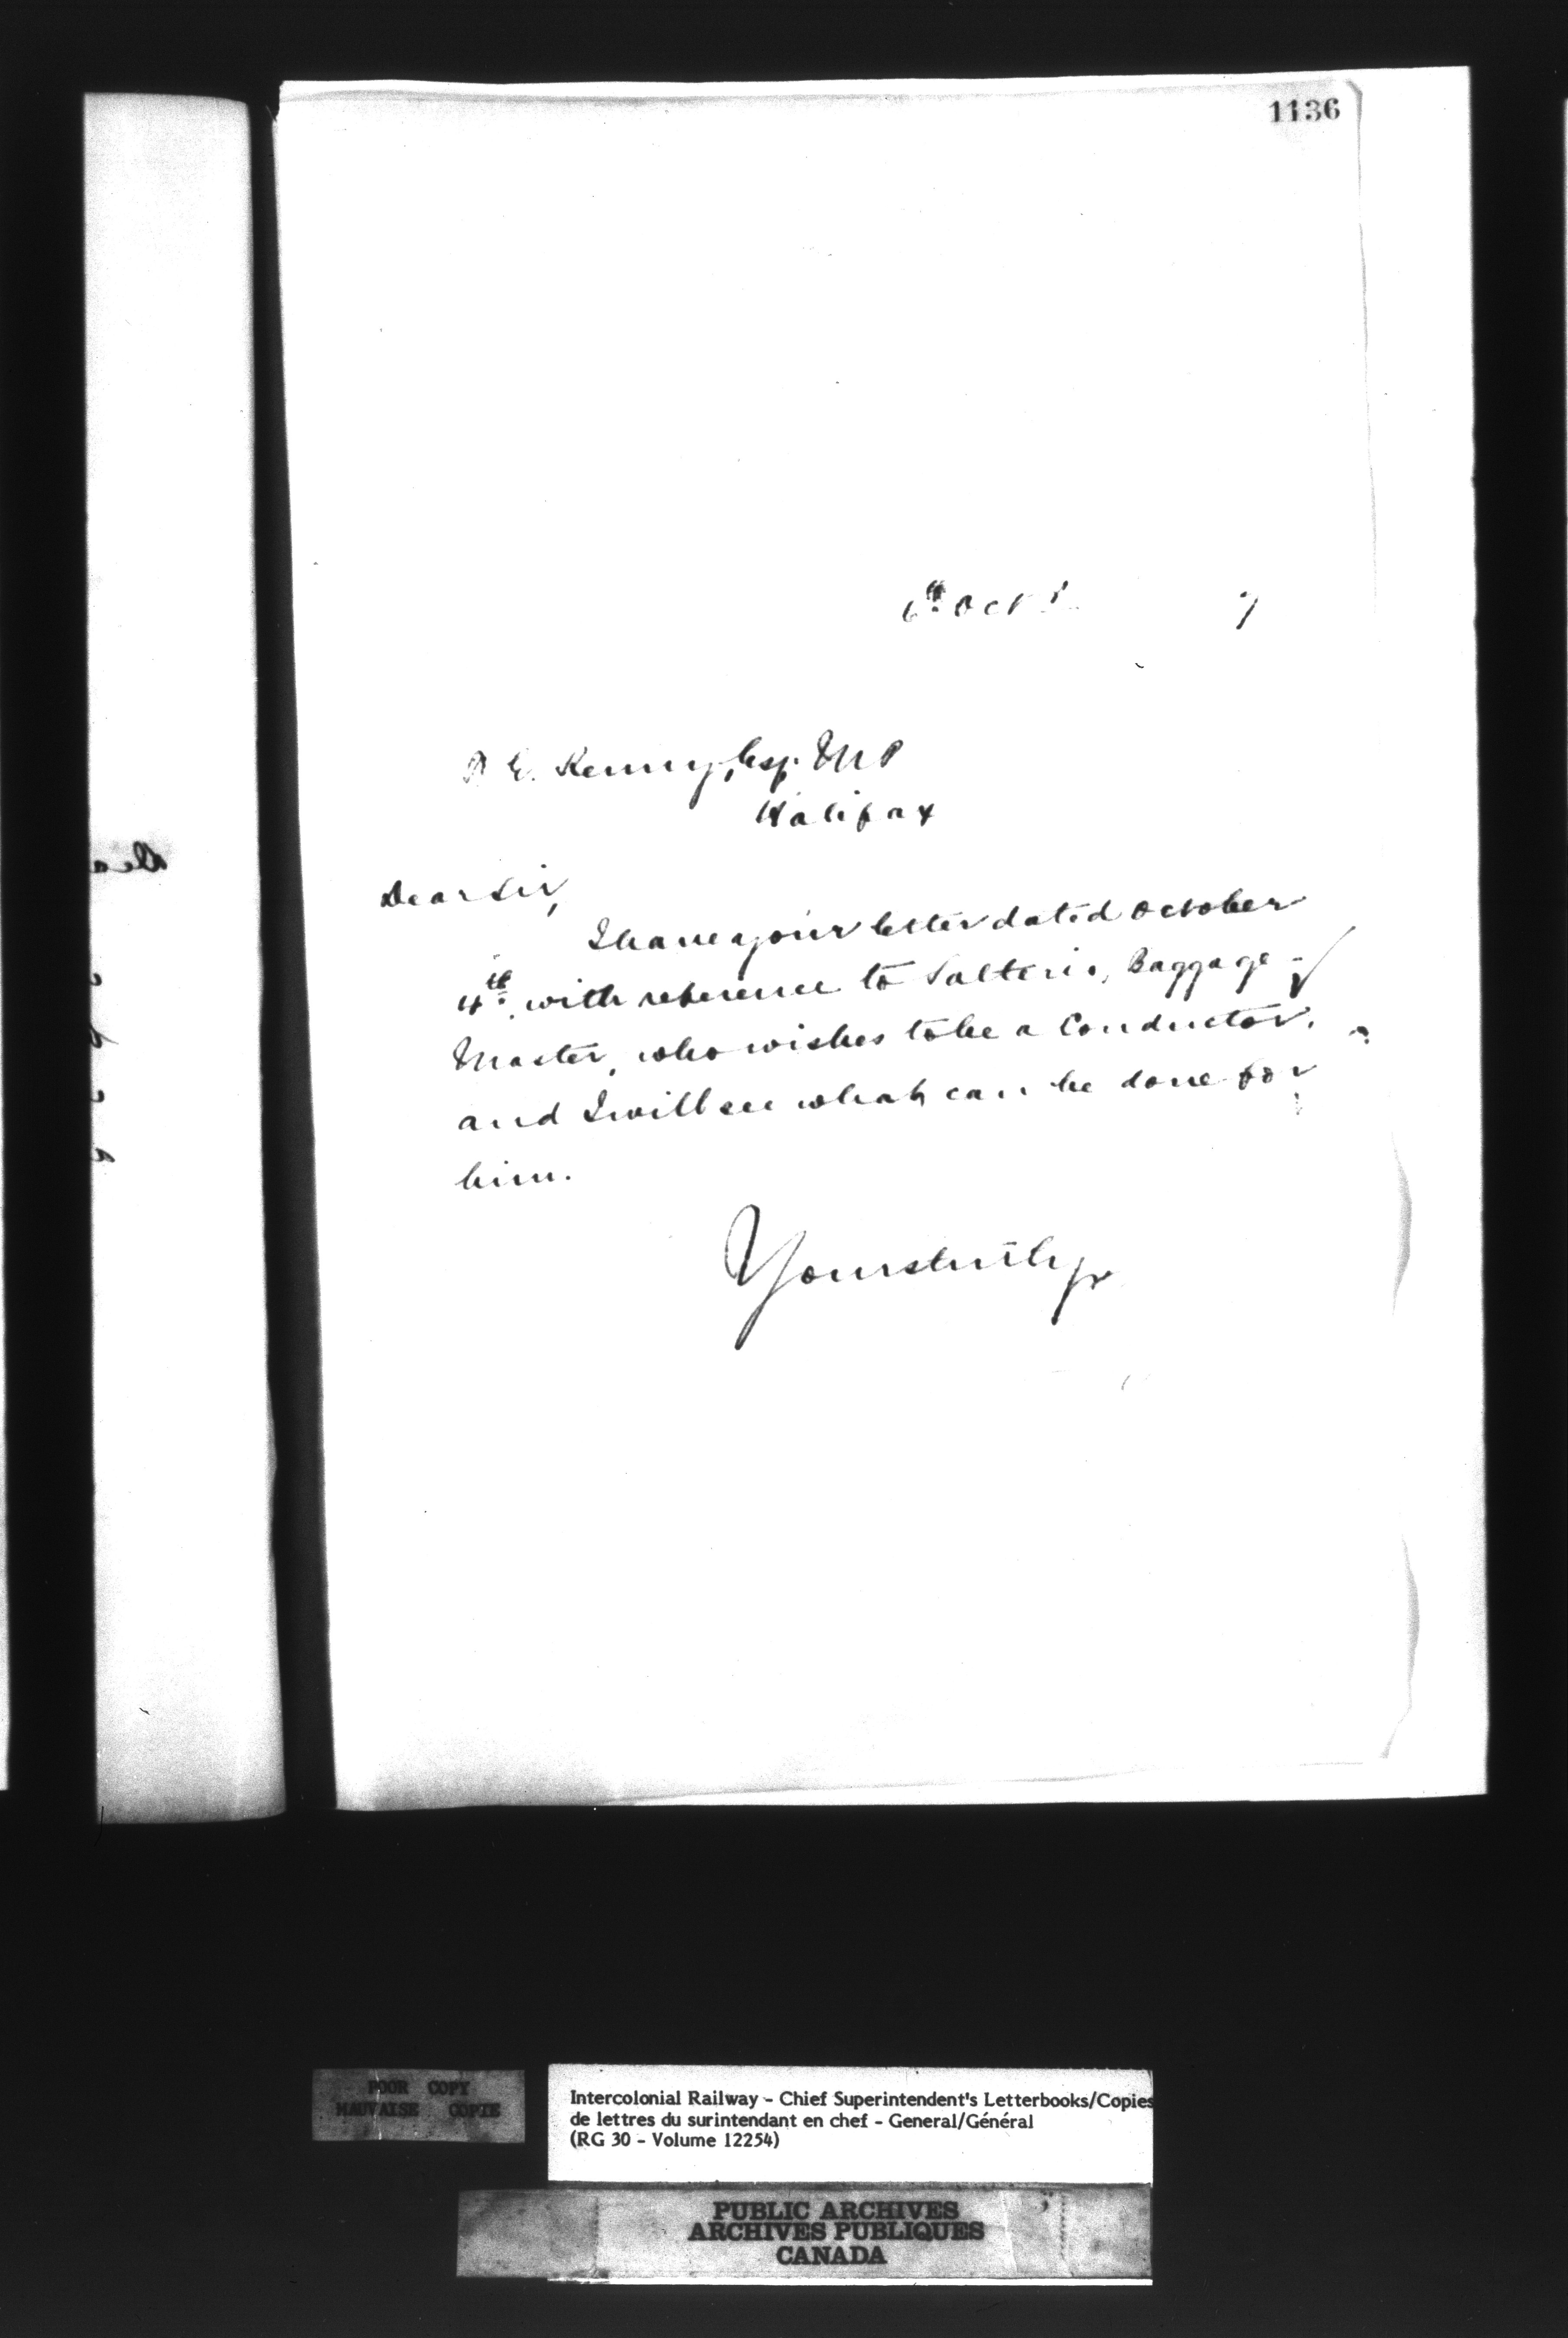 1136
6th Octr 7
T E. Kenny, Esq. MP
Halifax
Dear Sir,
I have your letter dated October
4th. with reference to Salterio, Baggage-
Master, who wishes to be a Conductor,
and I will see what can be done for
him.
Yours truly
POOR COPY
MAUVAISE COPIE
Intercolonial Railway - Chief Superintendent's Letterbooks/Copies
de lettres du surintendant en chef - General/Général
(RG 30 - Volume 12254)
PUBLIC ARCHIVES
ARCHIVES PUBLIQUES
CANADA